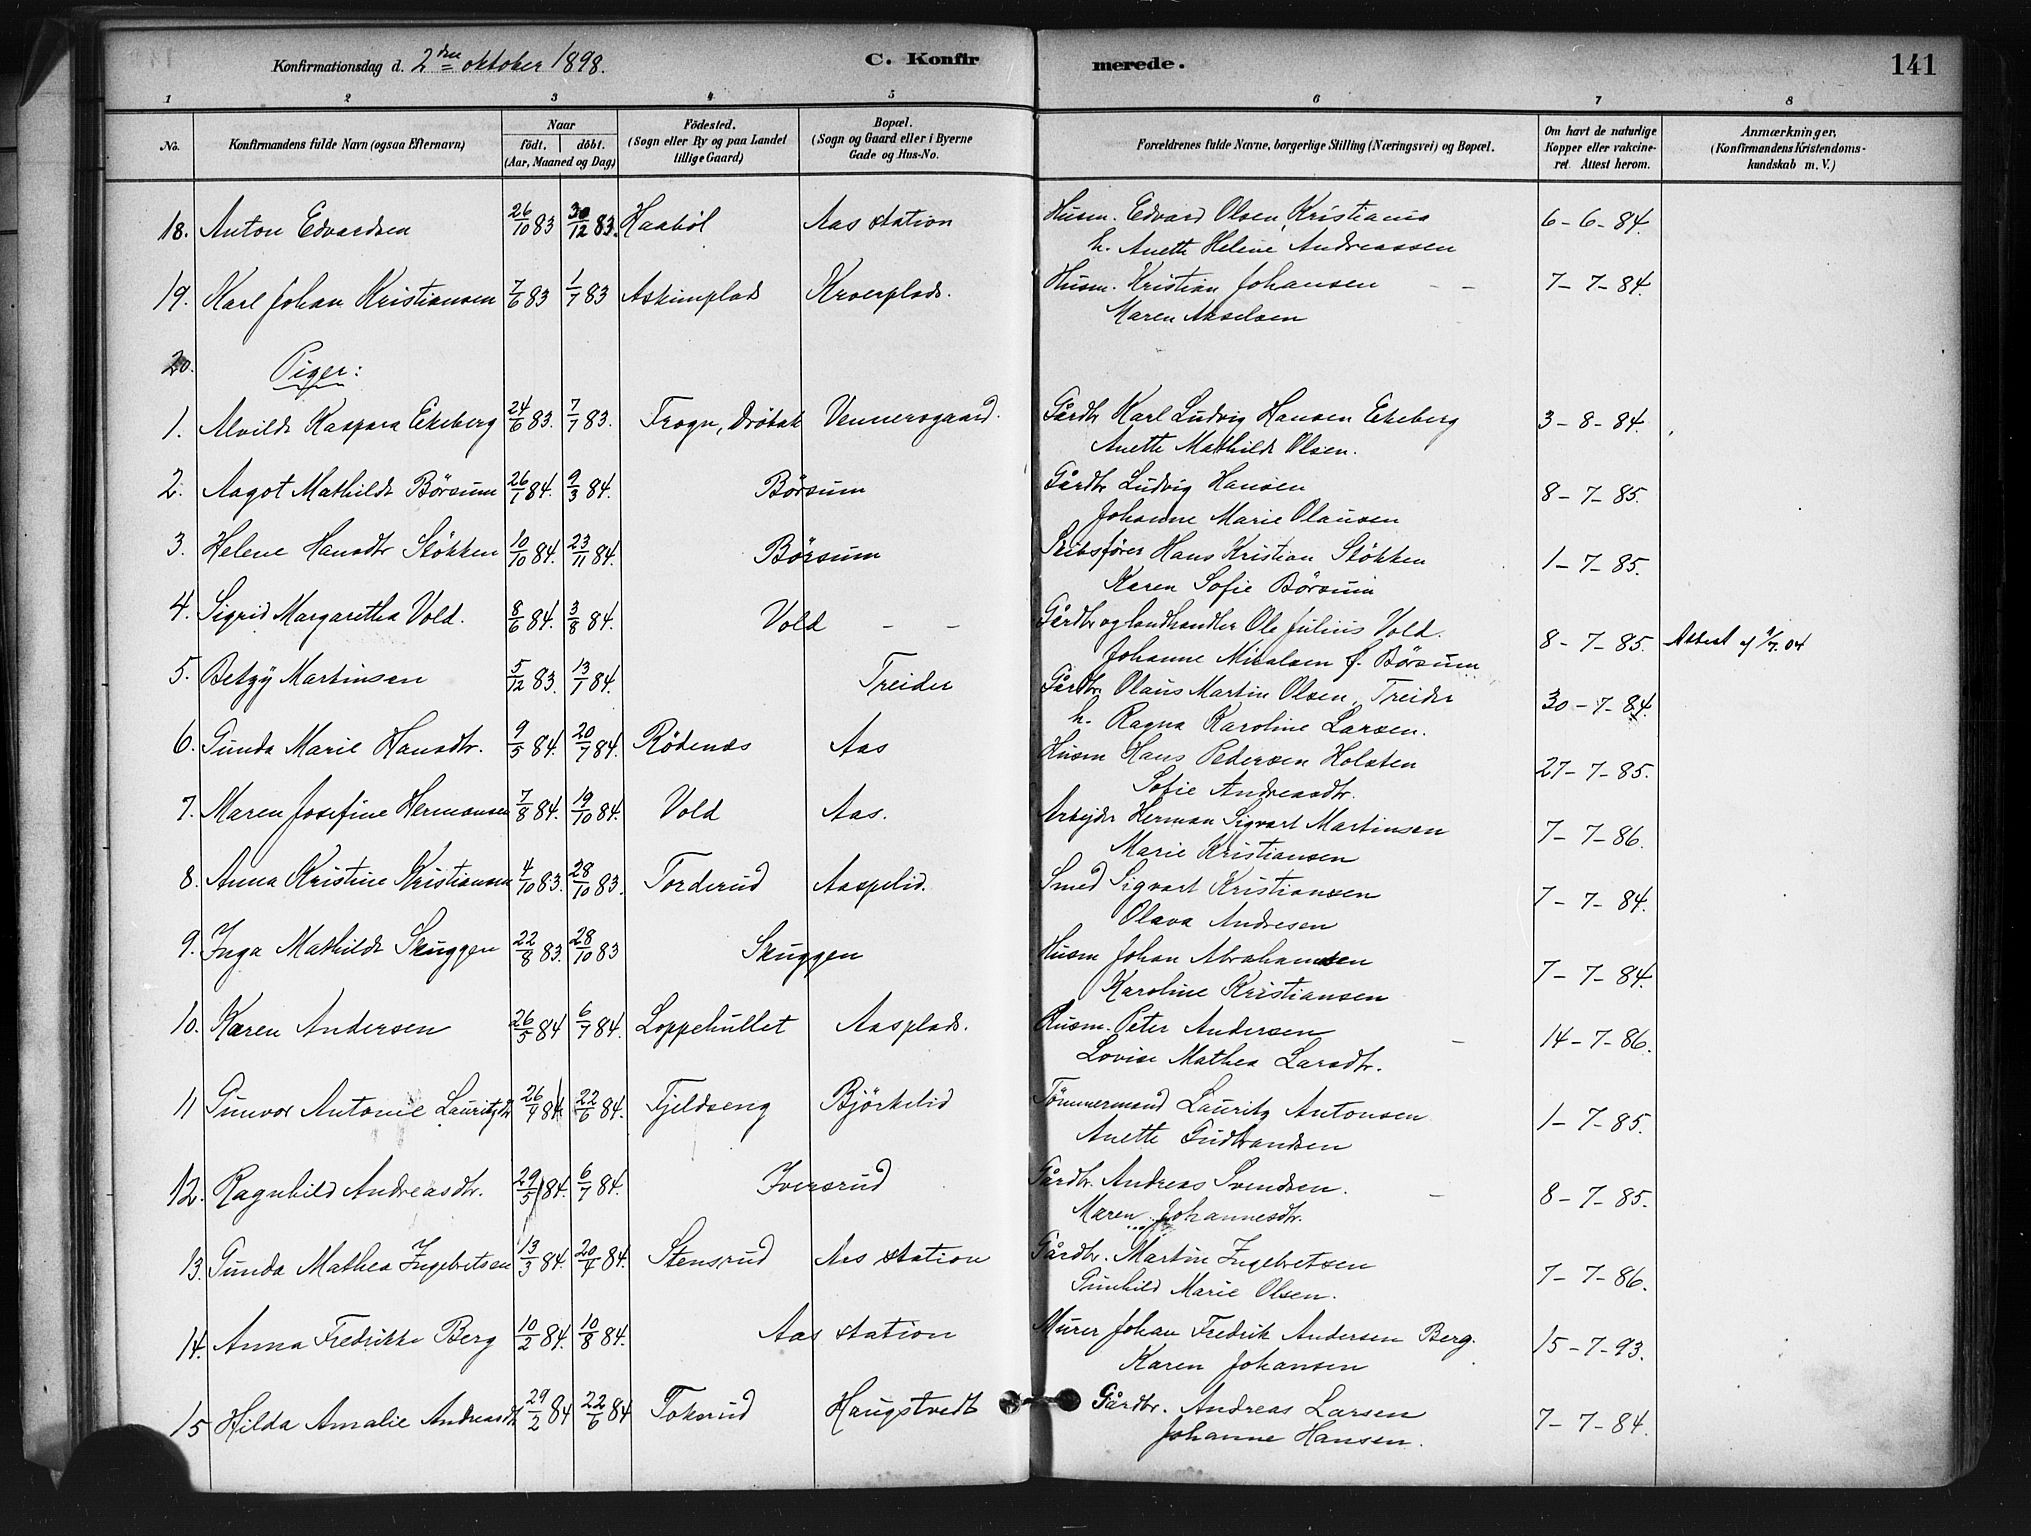 Konfirmationsdag d. 2den oktober 1898. C. Konfirmerede. 141
1 2 3 4 5 6 7 8
No. Konfirmandens fulde Navn (ogsaa Efternavn) Naar födt. döbt. (Aar, Maaned og Dag) Födested. (Sogn eller By og paa Landet tillige Gaard) Bopæl. (Sogn og Gaard eller i Byerne Gade og Hus-No. Forældrenes fulde Navne, borgerlige Stilling (Næringsvei) og Bopæl. Om havt de naturlige Kopper eller vakcineret. Attest herom. Anmærkninger, (Konfirmandens Kristendomskundskab m. V.)
18. Anton Edvardsen 26/10 83 30/12 83. Haaböl Aas station Husm. Edvard Olsen, Kristiania 6-6-84.
h. Anette Helene Andreassen
19. Karl Johan Kristiansen 7/6 83 1/7 83 Askimplads Kroerplads. Husm. Kristian Johansen 7-7-84.
Maren Akselsen
20. Piger:
1. Alvilde Kaspara Ekeberg 24/6 83. 7/7 83. Frogn, Dröbak Vennersgaard. Gårdbr Karl Ludvig Hansen Ekeberg 3-8-84.
Anette Mathilde Olsen.
2. Aagot Mathilde Börsum 26/1 84. 9/3 84. Börsum Gårdbr Ludvig Hansen 8-7-85.
Johanne Marie Olausen
3. Helene Hansdtr Stökken 10/10 84. 23/11 84. Börsum Skibsförer Hans Kristian Stökken 1-7-85.
Karen Sofie Börsum
4. Sigrid Margaretha Vold. 8/6 84. 3/8 84. Vold - - Gårdbr og landhandler Ole Julius Vold. 8-7-85. Attest
Johanne Nicolsen f. Börsum
5. Betzy Martinsen 5/12 83. 13/1 84. Treider Gårdbr. Olaus Martin Olsen, Treider 30-7-84.
h. Ragna Karoline Larsen.
6. Gunda Marie Hansdtr. 9/5 84. 20/7 84. Rödenæs Aas Husm Hans Pedersen Holsten 27-7-85.
Sofie Andreasdtr.
7. Maren Josefine Hermansen 7/8 84. 19/10 84. Vold Aas. Arbejder Herman Sigvart Martinsen 7-7-86.
Marie Kristiansen
8. Anna Kristine Kristiansen 4/10 83. 28/10 83. Torderud Aaspelid. Smed Sigvart Kristiansen 7-7-84.
Olava Andresen
9. Inga Mathilde Skuggen 22/8 83. 28/10 83 Skuggen Husm Johan Abrahamsen 7-7-84.
Karoline Kristiansen
10. Karen Andersen 26/5 84 6/7 84. Loppehullet Aasplads. Husm. Peter Andersen 14-7-86.
Lovise Mathea Larsdtr.
11 Gunvor Antonie Lauritzdtr 26/4 84. 22/6 84. Fjeldseng Björkelid Tömmermand Lauritz Antonsen 1-7-85.
Anette Gudbrandsen
12. Ragnhild Andreasdtr. 29/5 84. 6/7 84. Iversrud Gårdbr. Andreas Svendsen. 8-7-85.
Maren Johannesdtr.
13. Gunda Mathea Ingebretsen 13/3 84. 20/4 84. Stensrud Aas station Gårdbr. Martin Ingebretsen 7-7-86.
Gunhild Marie Olsen.
14. Anna Fredrikke Berg 10/2 84. 10/8 84. Aas station Murer Johan Fredrik Andersen Berg. 15-7-93.
Karen Johansen
15 Hilda Amalie Andreasdtr 29/2 84 22/6 84 Toksrud Haugstvedt Gårdbr. Andreas Larsen 7-7-84.
Johanne Hansen.